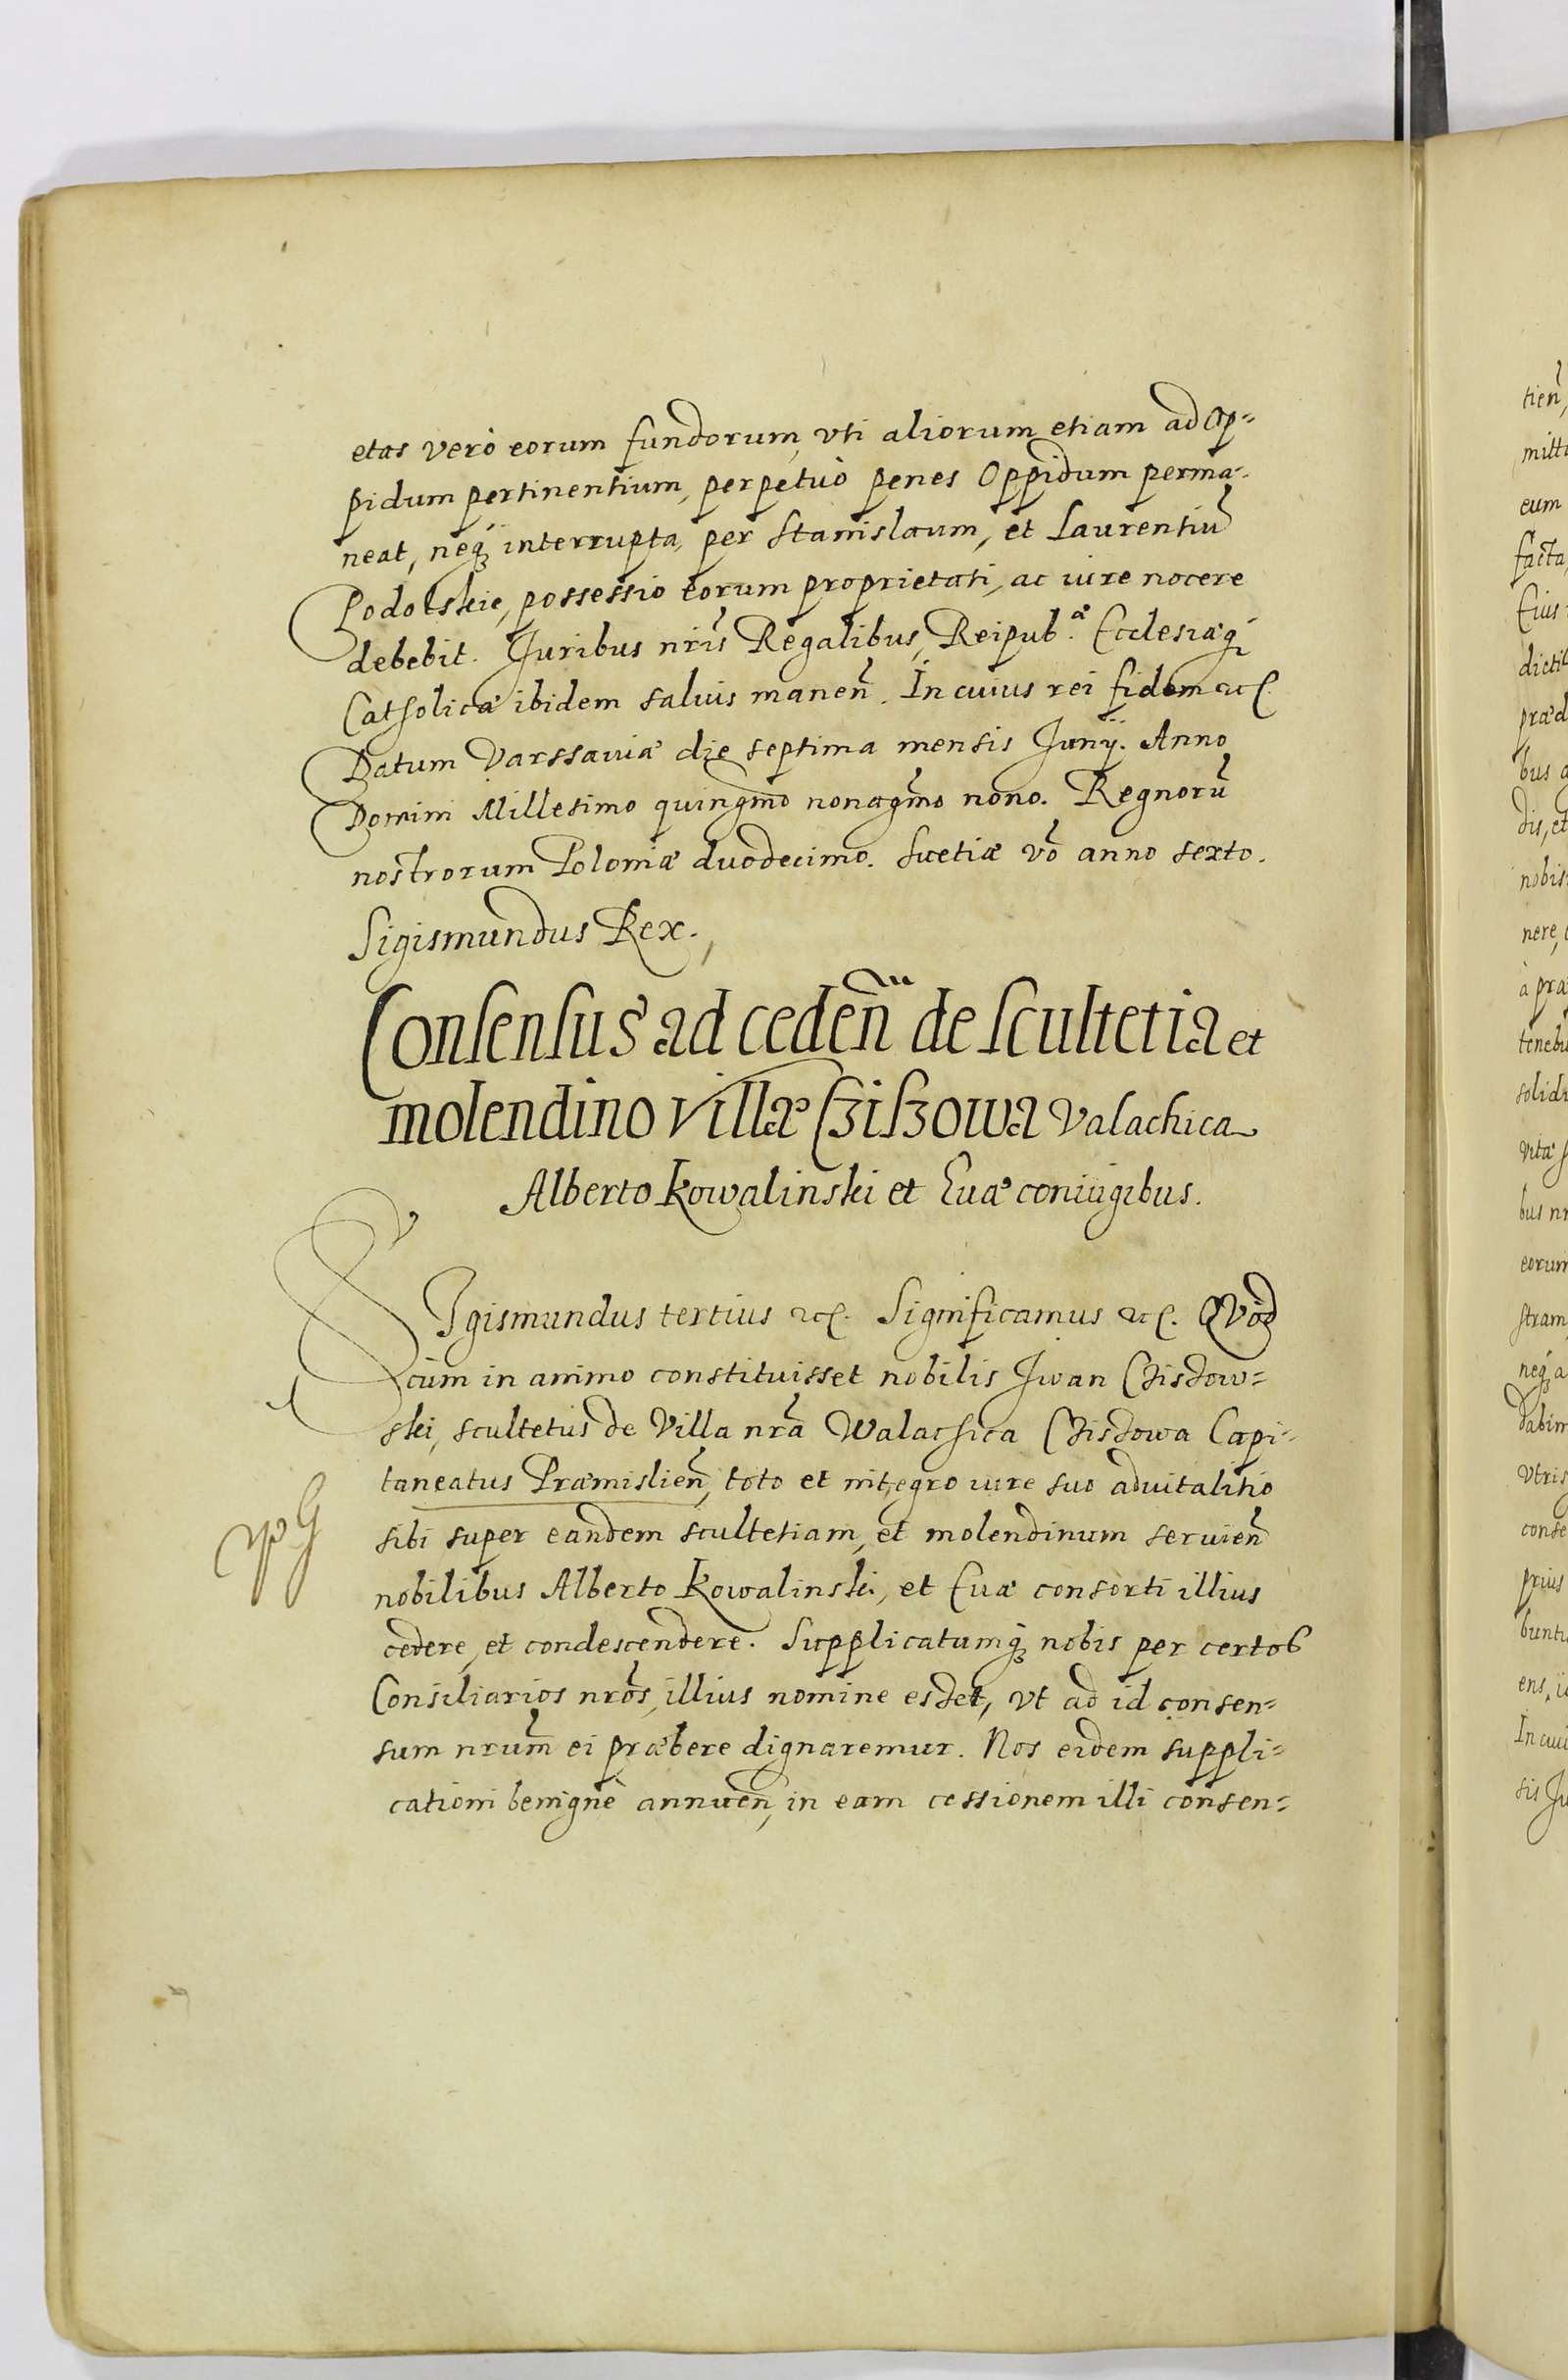 etas verò eorum fundorum, vti aliorum etiam ad Op=
pidum pertinentium, perpetuò penes Oppidum perma=
neat, neq₃ interrupta, per Stanislaum, et Laurentiū
Podolskie, possessio eorum proprietati, ac iure nocere
debebit. Juribus nr̃is Regalibus, Reipub.æ Ecclesiæq₃
Catholicæ ibidem saluis maneñ. In cuius rei fidem etc.
Datum Varssauiæ die septima mensis Junij. Anno
Domini Millesimo quingm̃o nonagm̃o nono. Regnorū
nostrorum Poloniæ duodecimo. Suetiæ võ anno sexto.
Sigismundus Rex.
Consensus ad cedeñ de scultetia et
molendino villæ Cziszowa Valachica
Alberto Kowalinski et Euæ coniugibus.
SIgismundus tertius etc. Significamus etc. Quòd
cùm in animo constituisset nobilis Jwan Czisdow=
ski, scultetus de Villa nr̃a Walachica Czisdowa Capi=
taneatus Præmislieñ, toto et integro iure suo aduitalitio
sibi super eandem scultetiam, et molendinum seruieñ
nobilibus Alberto Kowalinski, et Euæ consorti illius
cedere, et condescendere. Supplicatumq₃ nobis per certos
Consiliarios nr̃os, illius nomine esset, vt ad id consen=
sum nr̃um ei præbere dignaremur. Nos eidem suppli=
cationi benignè annueñ, in eam cessionem illi consen=